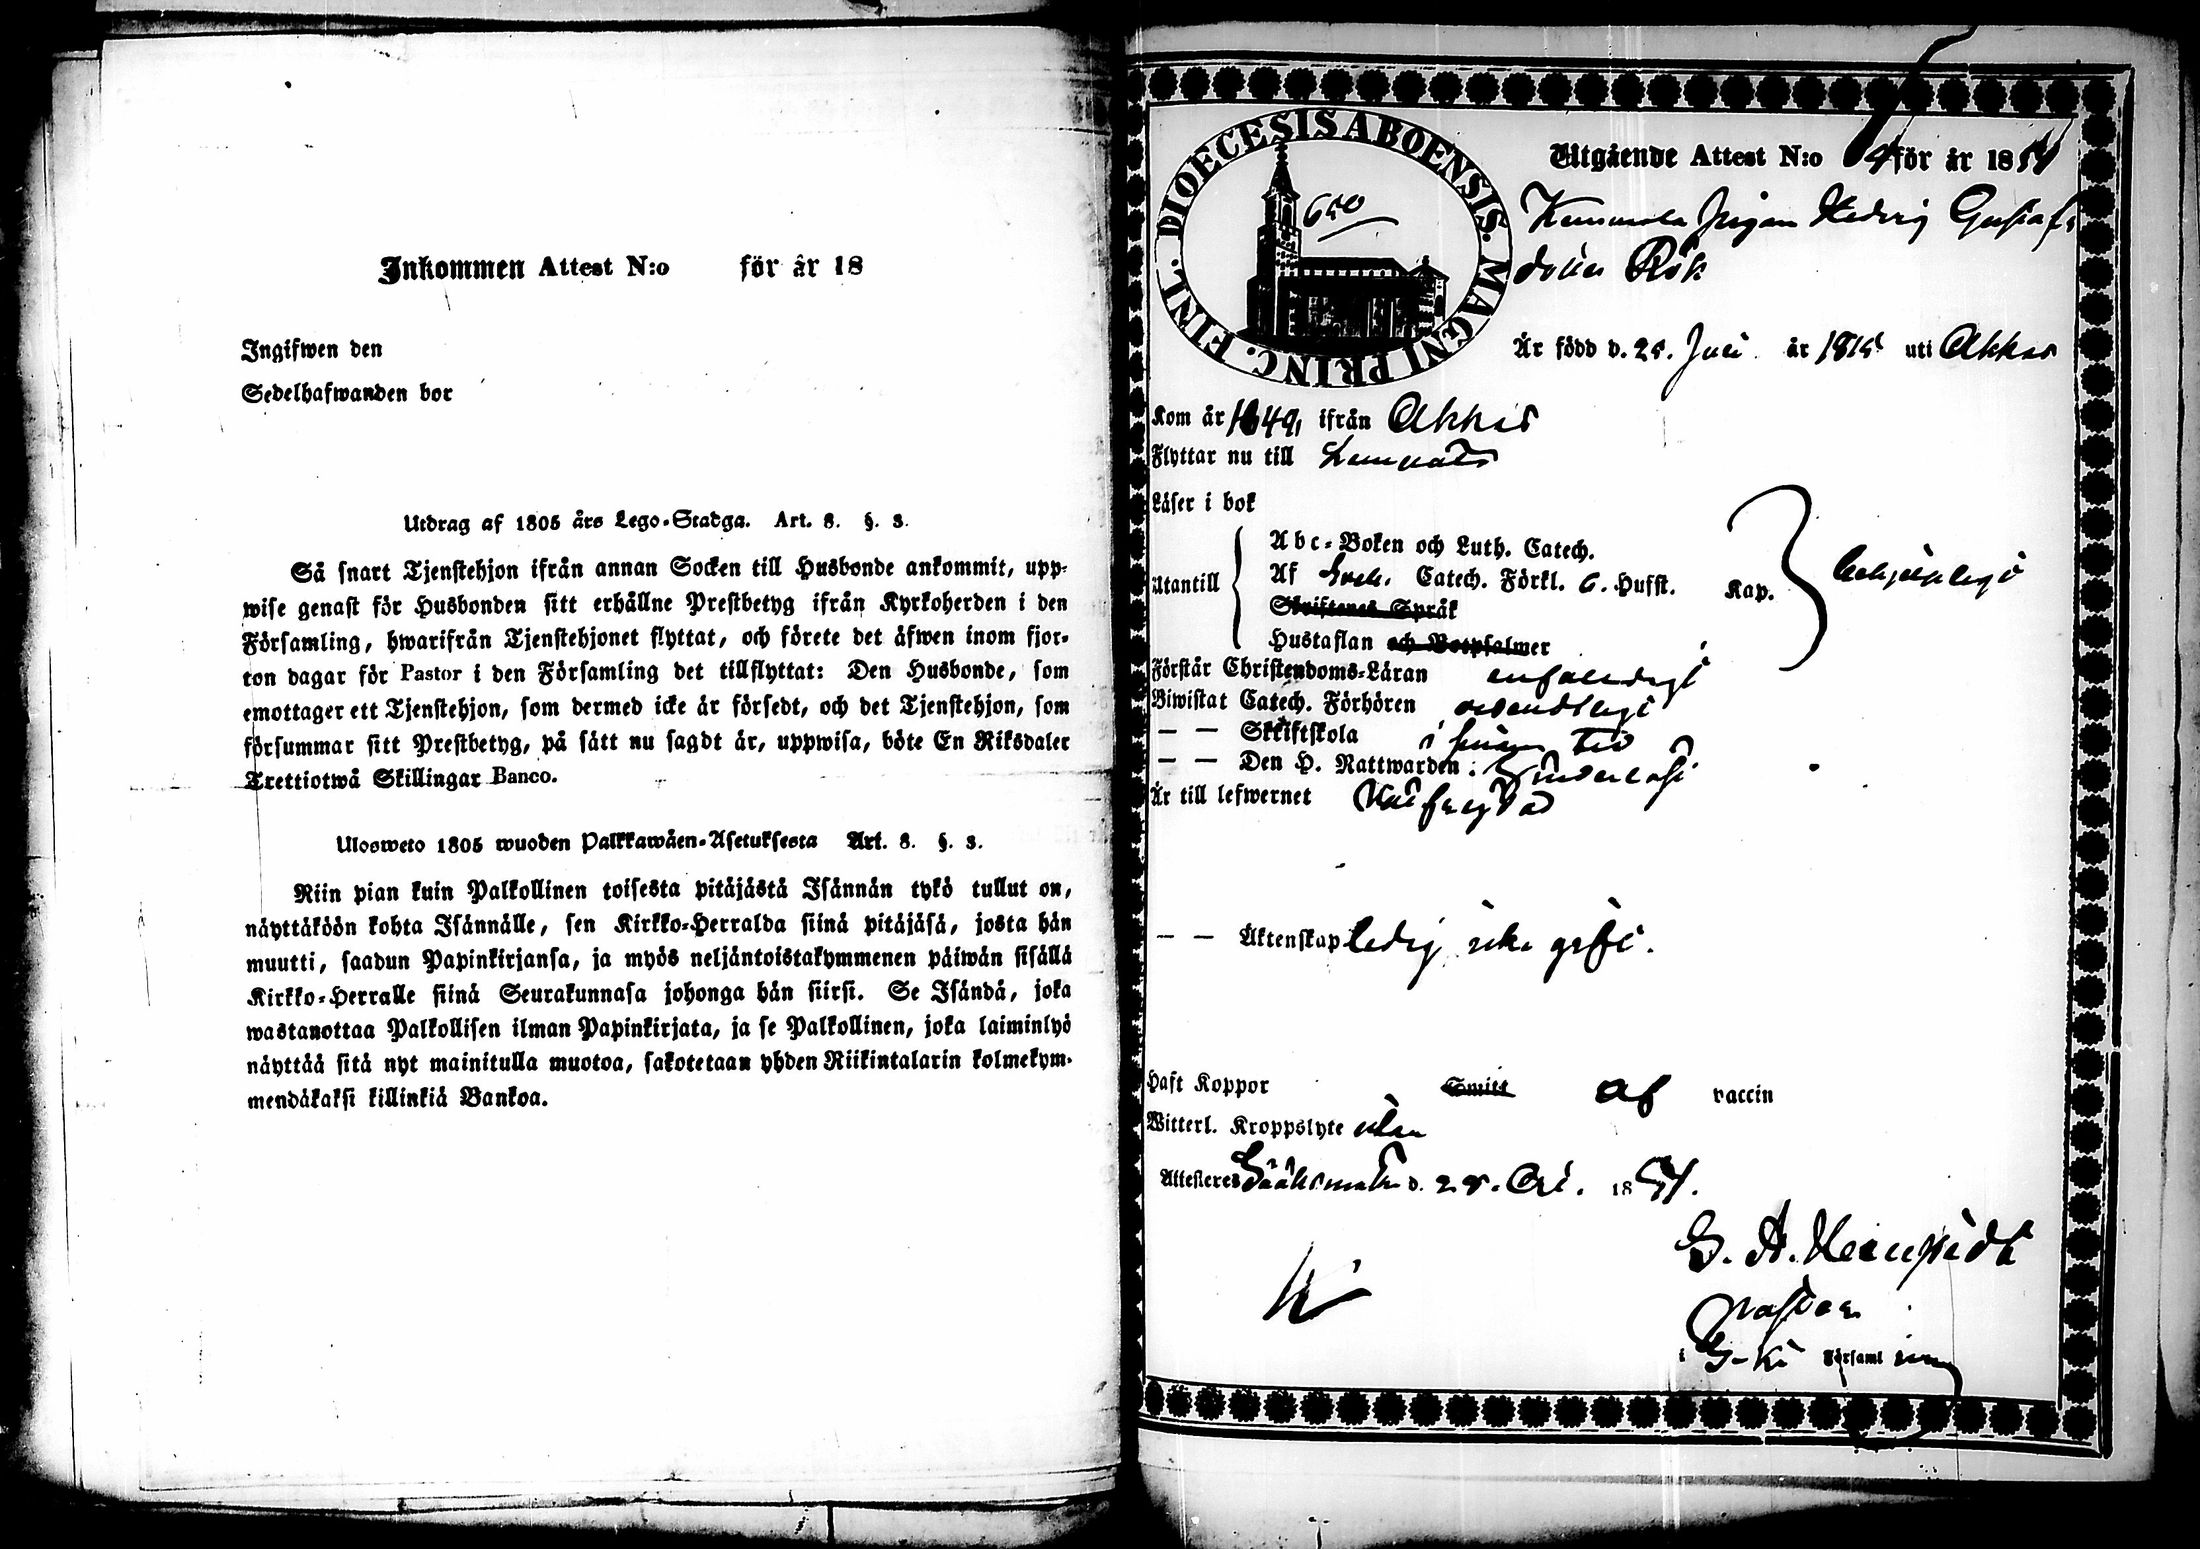 Inkommen Attest N:o för år 18
Ingifwen den
Sedelhafwanden bor
Utdrag af 1805 års Lego-Stadga. Art. 8. §. 3.
Så snart Tjenstehjon ifrån annan Socken till Husbonde ankommit, upp-
wise genast för Husbonden sitt erhållne Prestbetyg ifrån Kyrkoherden i den
Församling, hwarifrån Tjenstehjonet flyttat, och förete det äfwen inom fjor-
ton dagar för Pastor i den Församling det tillflyttat: Den Husbonde, som
emottager ett Tjenstehjon, som dermed icke är försedt, och det Tjenstehjon, som
försummar sitt Prestbetyg, på sätt nu sagdt är, uppwisa, böte En Riksdaler
Trettiotwå Skillingar Banco.
Ulosweto 1805 wuoden Palkkawäen-Asetuksesta Art. 8. §. 3.
Niin pian kuin Palkollinen toisesta pitäjästä Isännän tykö tullut on,
näyttäköön kohta Isännälle, sen Kirkko-Herralda siinä pitäjäsä, josta hän
muutti, saadun Papinkirjansa, ja myös neljäntoistakymmenen päiwän sisällä
Kirkko-Herralle siinä Seurakunnasa johonga hän siirsi. Se Isändä, joka
wastanottaa Palkollisen ilman Papinkirjata, ja se Palkollinen, joka laiminlyö
näyttää sitä nyt mainitulla muotoa, sakotetaan yhden Riikintalarin kolmekym-
mendäkaksi killinkiä Bankoa.
DIOECESIS ABOENSIS. MAGNI PRINC. FINL.
650
Utgående Attest N:o för år 1851
Pigan Hedvig Gustafs
dotter Rök
Är född d. 25. Juli år 1815 uti Akkas
Kom år 1849, ifrån Akkas
Flyttar nu till Lempäälä
Läser i bok
Utantill
Abc-Boken och Luth. Catech.
Af Sveb. Catech. Förkl. 6. Hufst. Kap.
Skriftenes Språk
Hustaflan och Botpsalmer
behjelpligt
Förstår Christendoms-Läran enfaldigt
Biwistat Catech. Förhören ordentligt
— — Skriftskola i sinom tid
— — Den H. Nattwarden
Är till lefwernet Wälfrejdad
— — Äktenskap ledig icke gift.
Haft Koppor Smitt af vaccin
Witterl. Kroppslyte utan
Attesteres Sääksmäki d. 25. Oct. 1851.
G. A. Heinricius
Pastor
i S-ki Församl ing